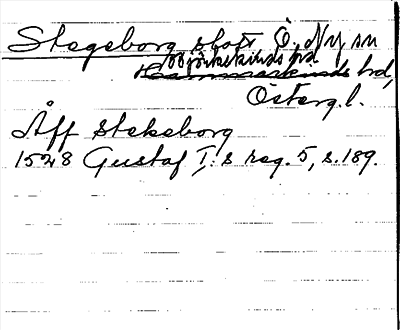 Stegeborg slott Ö. d/y, sn
Björkekinds hd
Hammarkinds hrd,
Österg. l.
Åff Stekeborg
1528 Gustaf I:s reg. 5, s. 189.